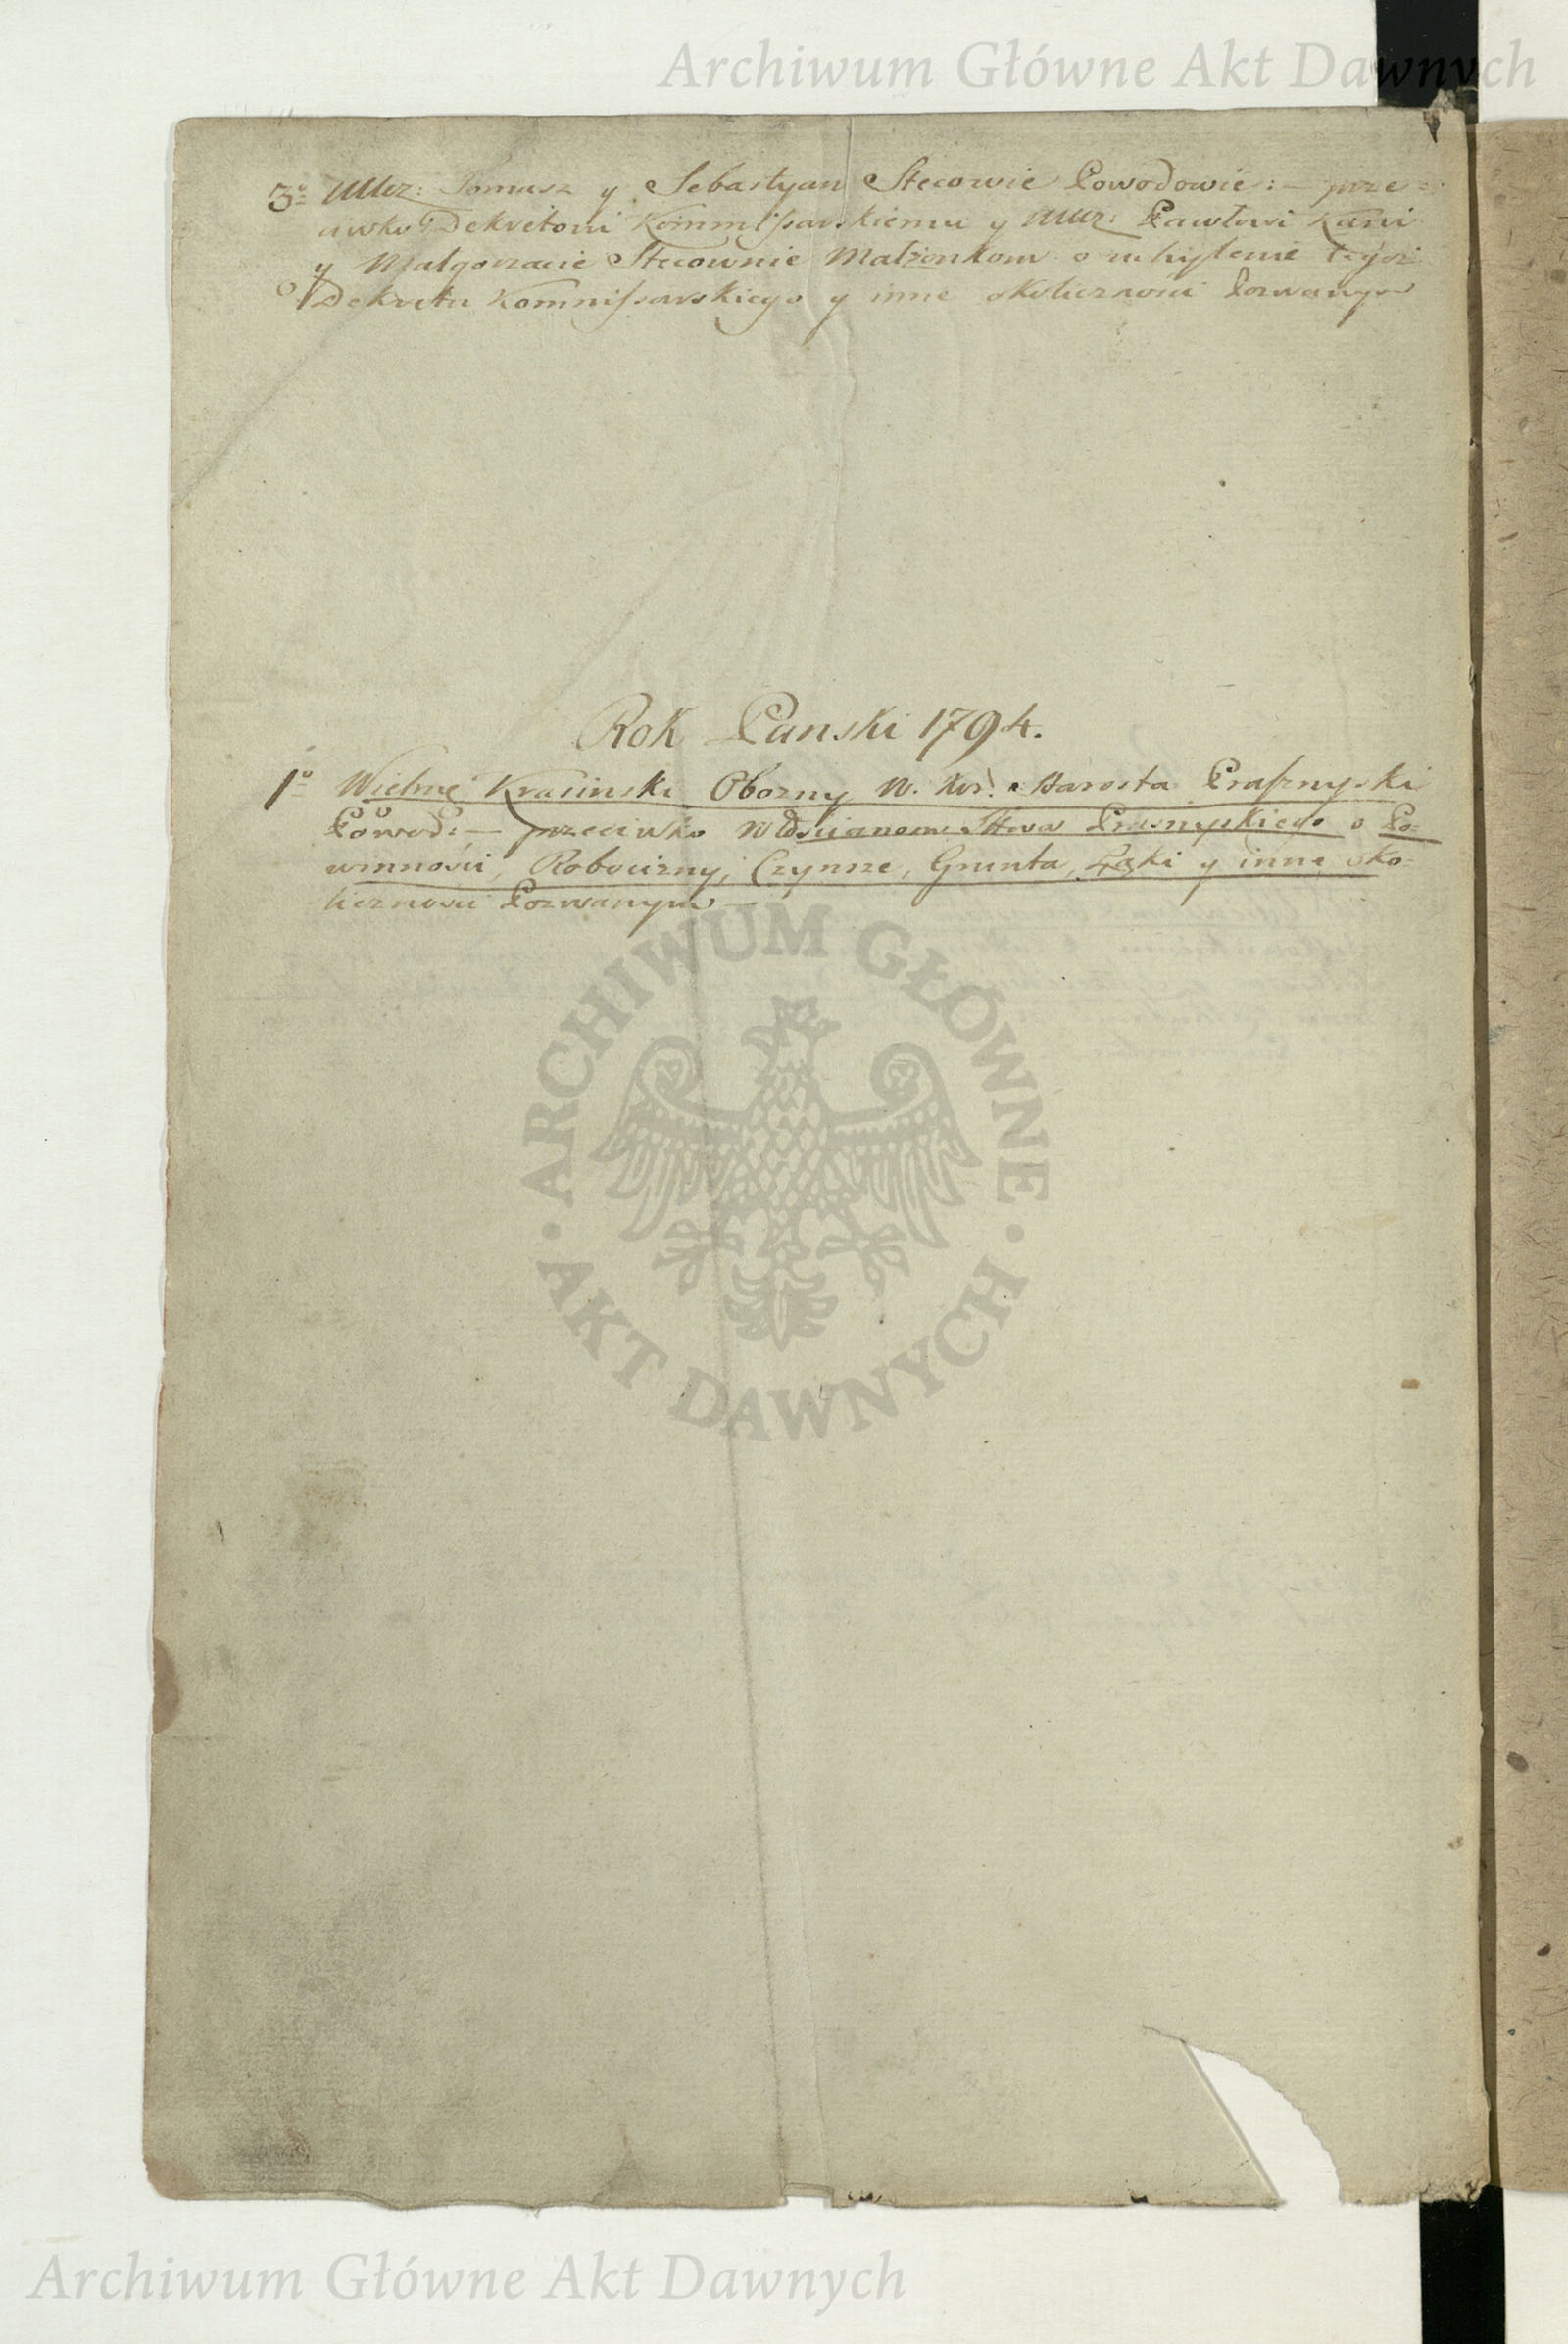 Archiwum Główne Akt Dawnych
3º Uucz: Tomasz y Sebastyan Stecowie Powodowie :— prze=
ciwko Dekretowi Kommissarskiemu y Uucz: Pawłowi Kani
y Małgorzacie Stecownie Małżonkom o uchylenie tegoż
Dekretu Kommissarskiego y inne okoliczności Pozwanym
Rok Panski 1794.
1º Wielmę Krasinski Oboźny W. Kor. Starosta Prasznyski
Powod: — przeciwko Włościanom Sttwa Prasnyskiego o Po=
winności, Robocizny, Czynsze, Grunta, Łąki y inne oko=
liczności Pozwanym —
ARCHIWUM GŁÓWNE · AKT DAWNYCH ·
Archiwum Główne Akt Dawnych